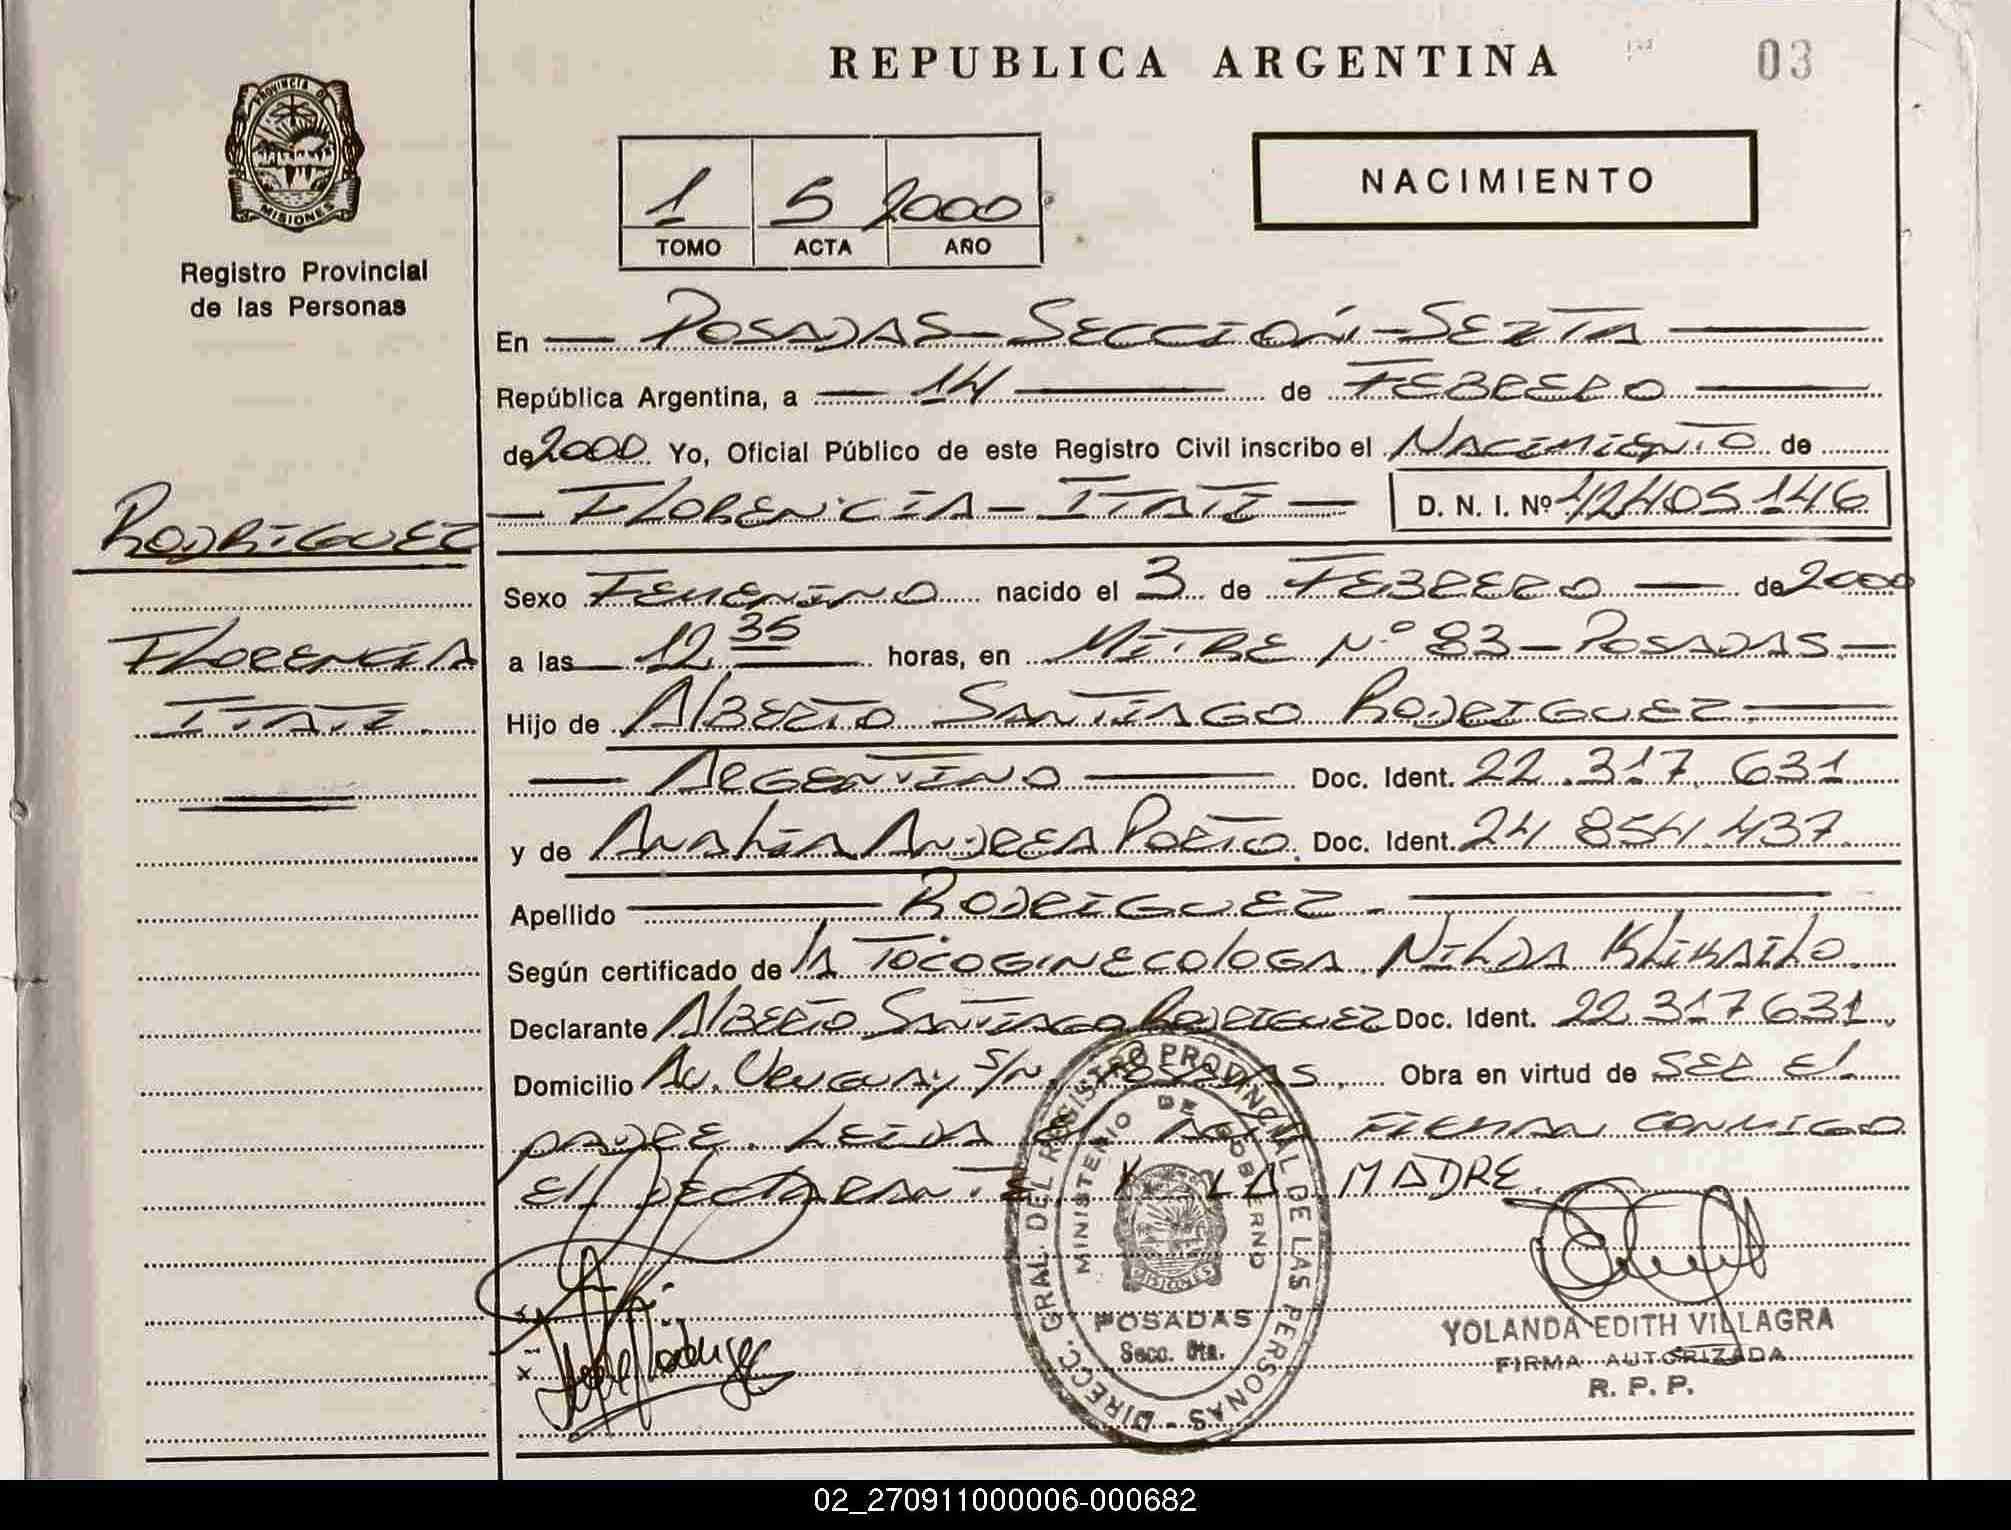 REPUBLICA ARGENTINA
03
PROVINCIA DE
MISIONES
Registro Provincial
de las Personas
1 5 2000
TOMO ACTA AÑO
NACIMIENTO
En POSADAS-SECCIÓN-SEXTA
República Argentina, a 14 de FEBRERO
de 2000 Yo, Oficial Público de este Registro Civil inscribo el NACIMIENTO de
FLORENCIA-ITATI D. N. I. Nº 42405146
RODRIGUEZ
FLORENCIA
ITATI.
Sexo FEMENINO nacido el 3 de FEBRERO de 2000
a las 12 35 horas, en MITRE Nº 83-POSADAS-
Hijo de AlBERTO SANTIAGO RODRIGUEZ
ARGENTINO Doc. Ident. 22.317.631
y de ANALIA ANDREA PORTO. Doc. Ident. 24 854.437.
Apellido RODRIGUEZ
Según certificado de lA TOCOGINECOloGA NILDA
Declarante AlBERTO SANTIAGO RODRIGUEZ Doc. Ident. 22 317 631.
Domicilio AV. URUGUAY S/N. POSADAS. Obra en virtud de SER El
PADRE. LEIDA El ACTA FIRMAN CONMIGO
El DECLARANTE Y LA MADRE.
DIRECC. GRAL. DEL REGISTRO PROVINCIAL DE LAS PERSONAS
MINISTERIO DE GOBIERNO
MISIONES
POSADAS
Secc. 6ta.
YOLANDA EDITH VILLAGRA
FIRMA AUTORIZADA
R. P. P.
02_270911000006-000682